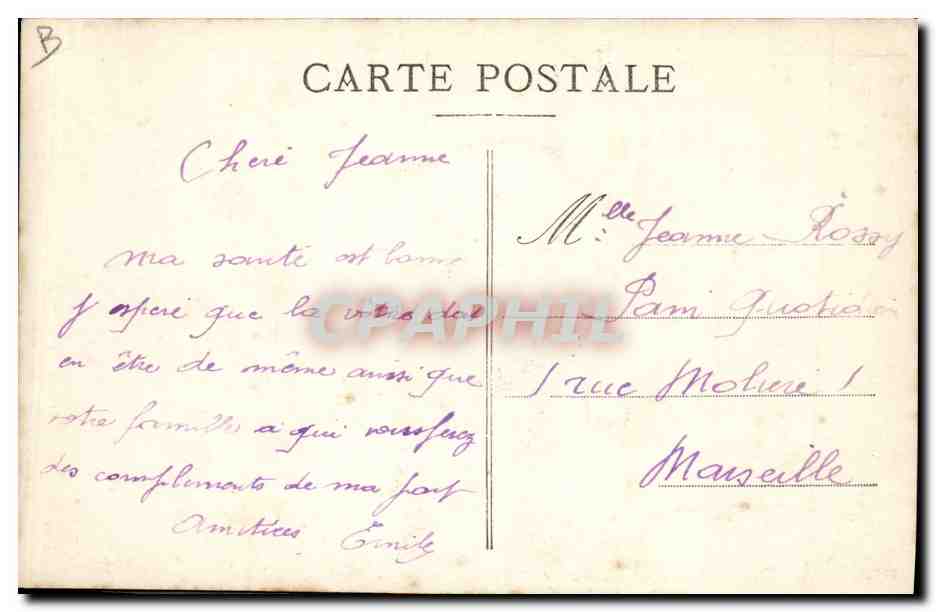 B
CARTE POSTALE
Cheré Jeanne
ma santé est bonne
j'esperé que la votre doit
en être de même ainsi que
votre familles a qui vous ferez
des compliments de ma part
Amitiées Emile
Mlle Jeanne Rossy
Pain Quotidien
1 rue Molieré 1
Marseille
CPAPHIL